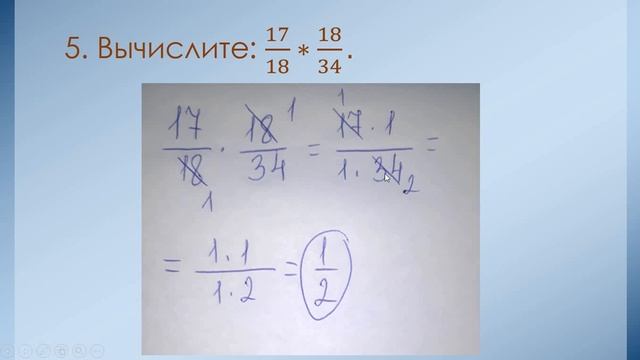 5. Вычислите: 17/18 * 18/34.
17/18 · 18/34 = 17 · 1 / 1 · 34 =
1 1 1 2
= 1 · 1 / 1 · 2 = 1/2